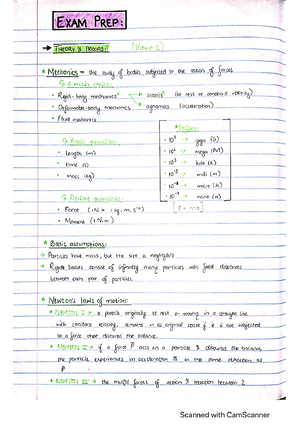 EXAM PREP:
→ THEORY & PROCESS:
* Mechanics = the study of bodies subjected to the action of forces
• Rigid-body mechanics statics (at rest or constant velocity)
• Deformable-body mechanics dynamics (acceleration)
• Fluid mechanics
• length (m)
• time (s)
• mass (kg)
• 10⁹ → giga (G)
• 10⁶ → mega (M)
• 10³ → kilo (k)
• 10⁻³ → milli (m)
• 10⁻⁶ → micro
• 10⁻⁹ → nano (n)
• Force (1N = 1kg.m.s⁻²)
• Moment (1 N.m)
* Basic assumptions:
→ Particles have mass, but the size is negligible
→ Rigid bodies consist of infinitely many particles with fixed distances
between each pair of particles.
* Newton's laws of motion:
• NEWTON I → a particle originally at rest or moving in a straight line
with constant velocity, remains in its original state if it is not subjected
to a force that disturbs the balance.
• NEWTON II → if a force F acts on a particle & disturbs the balance,
the particle experiences an acceleration in the same direction as
F.
• NEWTON III → the mutual forces of action & reaction between 2
Scanned with CamScanner